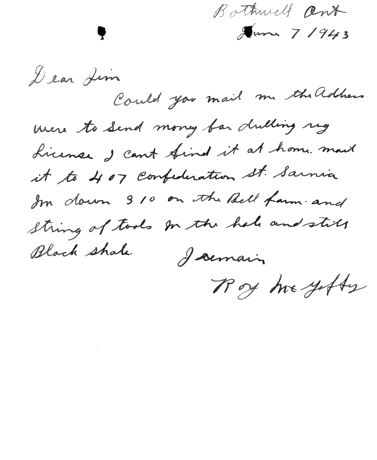 Bothwell Ont
June 7 1943
Dear Jim
Could you mail me the Address
were to send money for drilling rig
License I cant find it at home. mail
it to 407 Confederation St. Sarnia
Im down 310 on the Bell farm and
string of tools in the hole and still
Black shale.
I remain
Roy